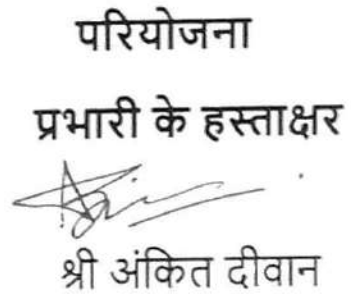 परियोजना
प्रभारी के हस्ताक्षर
श्री अंकित दीवान